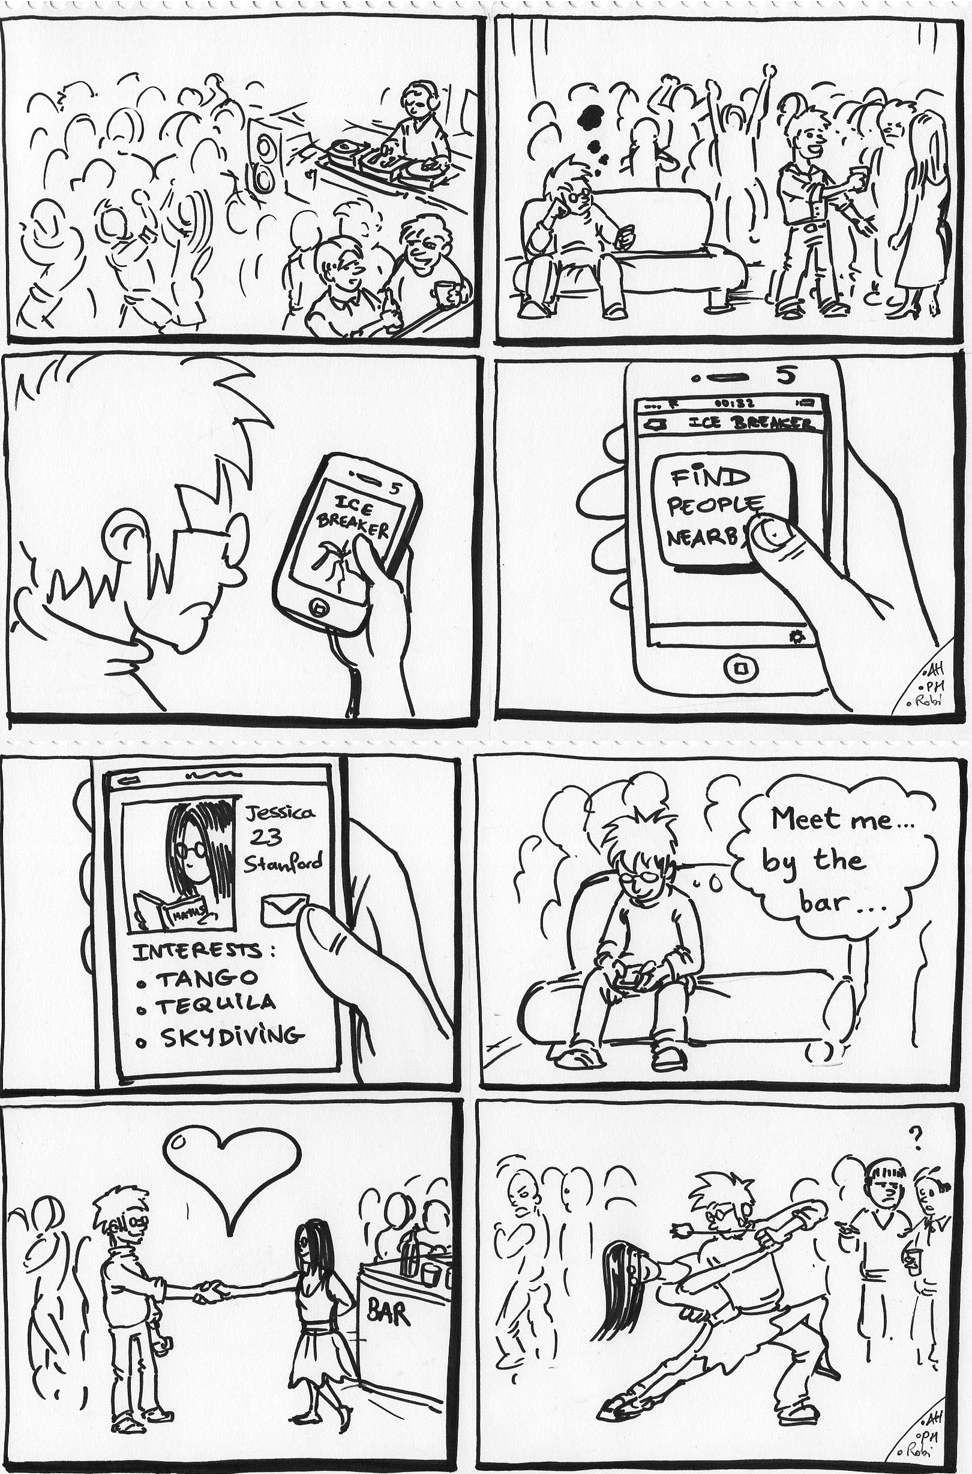 5
ICE
BREAKER
5
00:32
ICE BREAKER
FIND
PEOPLE
NEARB
AH
PH
Robi
Jessica
23
Stanford
MATHS
INTERESTS:
• TANGO
• TEQUILA
• SKYDIVING
Meet me...
by the
bar...
BAR
?
AH
PH
Robi